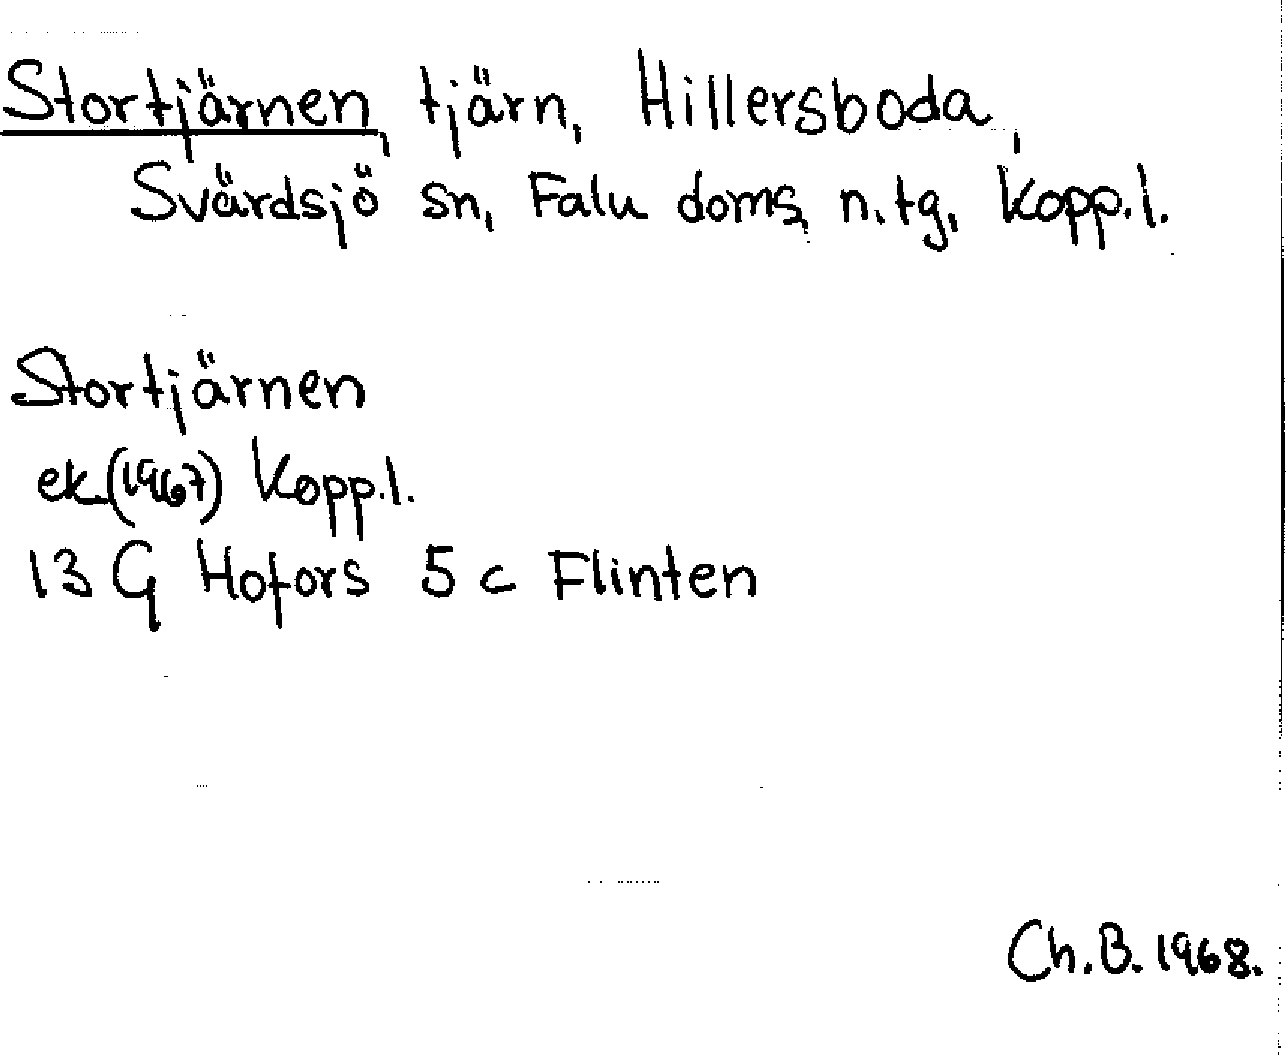 Stortjärnen, tjärn, Hillersboda,
Svärdsjö sn, Falu doms, n.tg, Kopp.l.
Stortjärnen
ek.(1967) Kopp.l.
13 G Hofors 5 c Flinten
Ch.B. 1968.